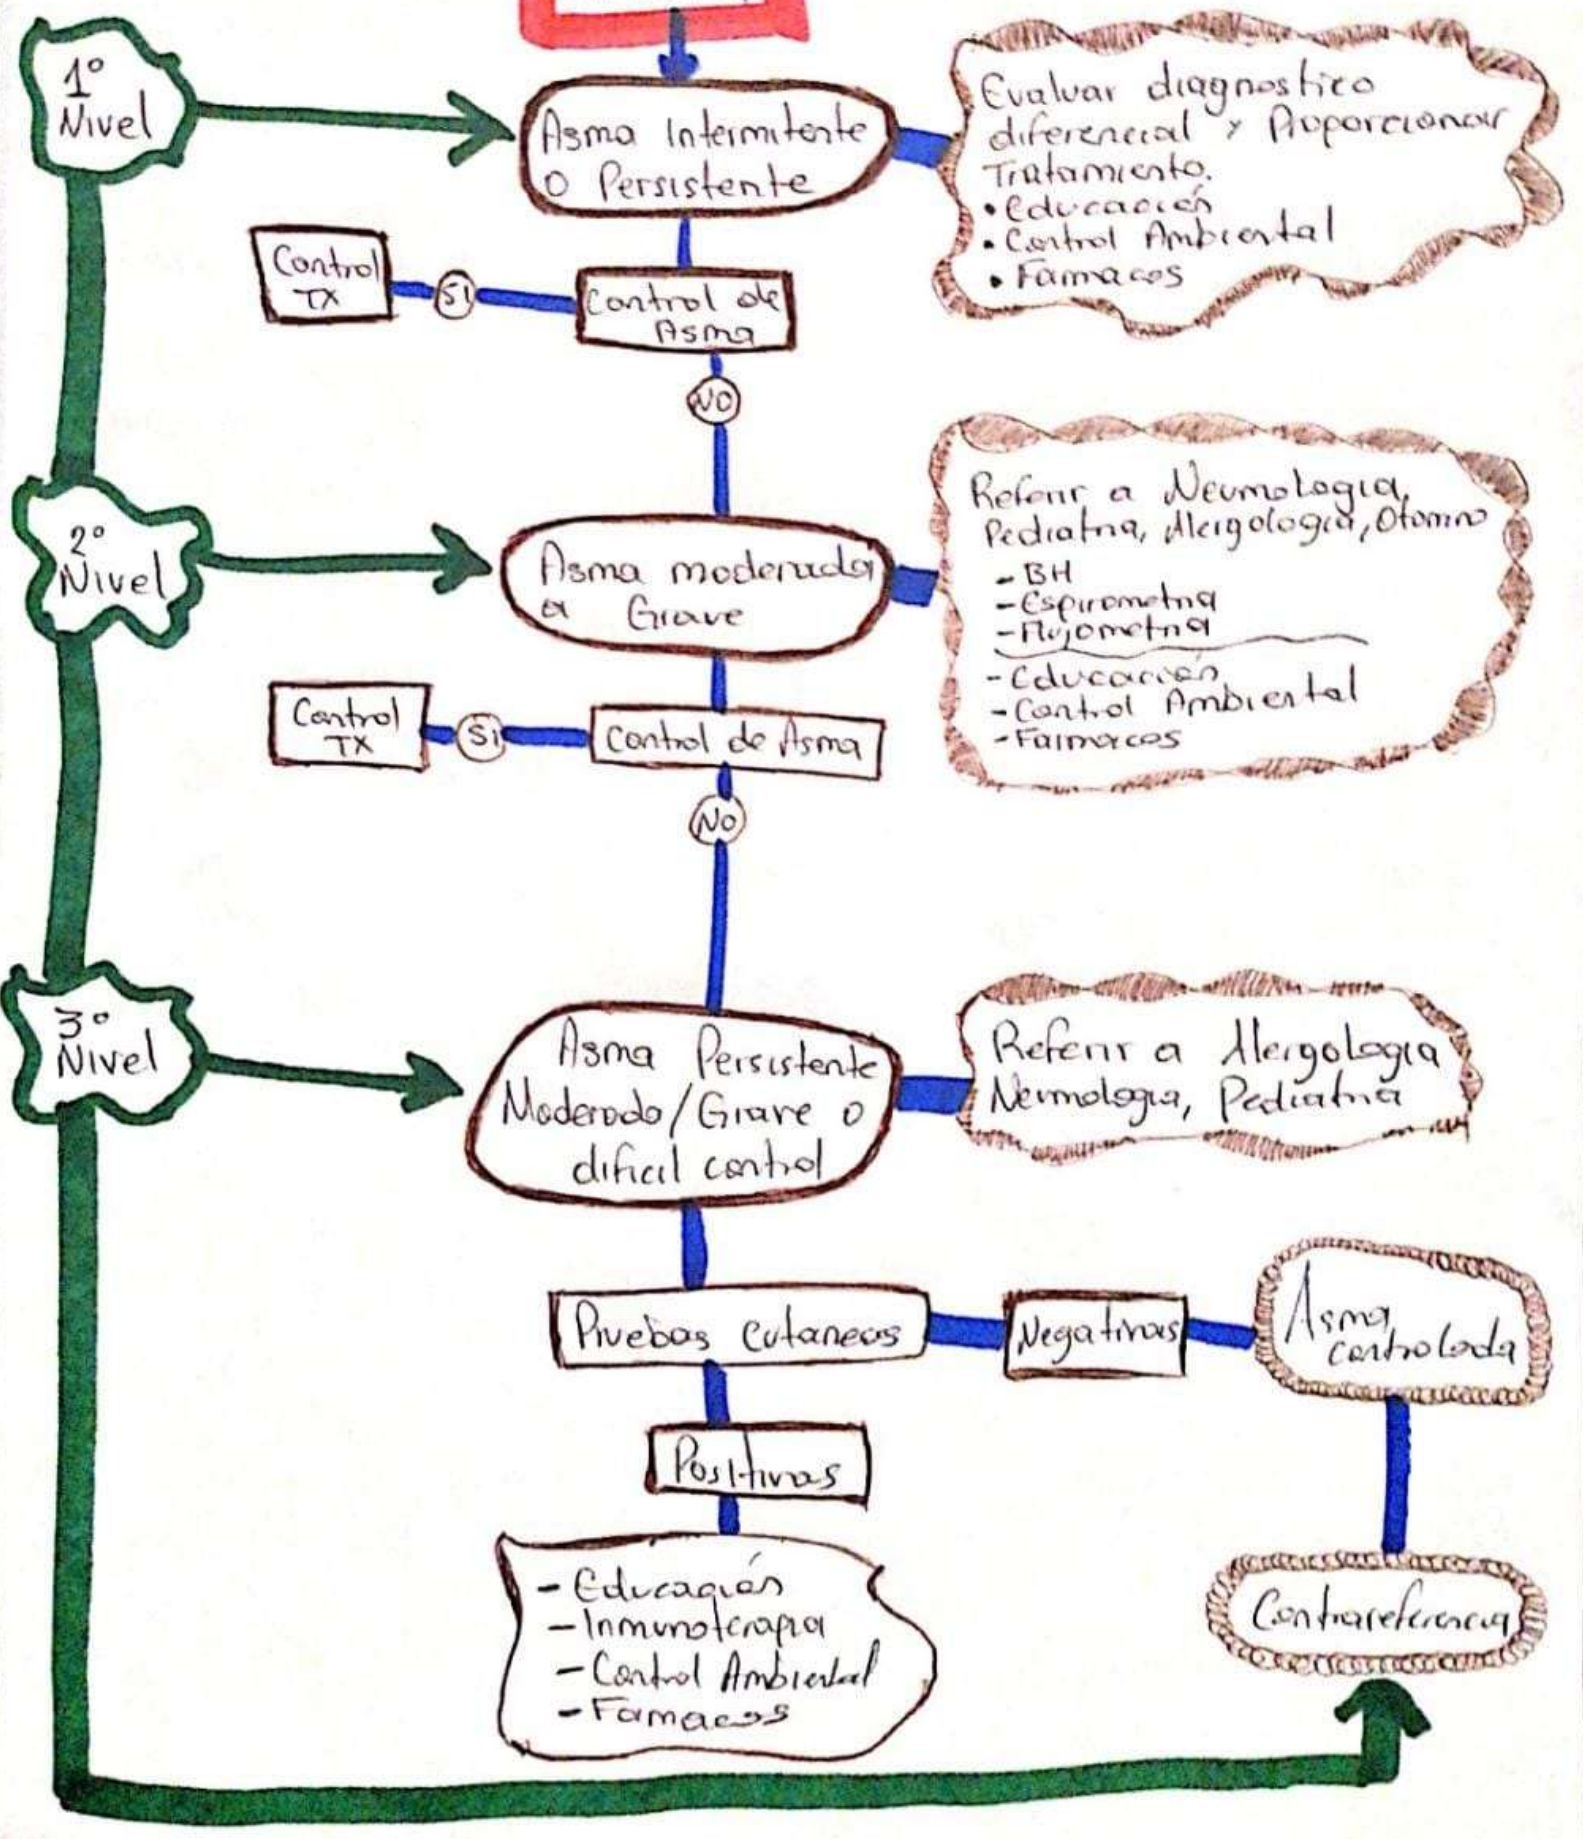 1º
Nivel
Asma Intermitente
O Persistente
Evaluar diagnostico
diferencial y Proporcionar
Tratamiento.
• Educación
• Control Ambiental
• Farmacos
Control
TX
SI
Control de
Asma
NO
2º
Nivel
Asma moderada
a Grave
Referir a Neumologia,
Pediatria, Alergologia, Otorrino
- BH
- Espirometria
- Flujometria
- Educación
- Control Ambiental
- Farmacos
Control
TX
Si
Control de Asma
No
3º
Nivel
Asma Persistente
Moderado/Grave o
dificil control
Referir a Alergologia
Neumologia, Pediatria
Pruebas cutaneas
Negativas
Asma
controlada
Positivas
- Educación
- Inmunoterapia
- Control Ambiental
- Farmacos
Contrareferencia